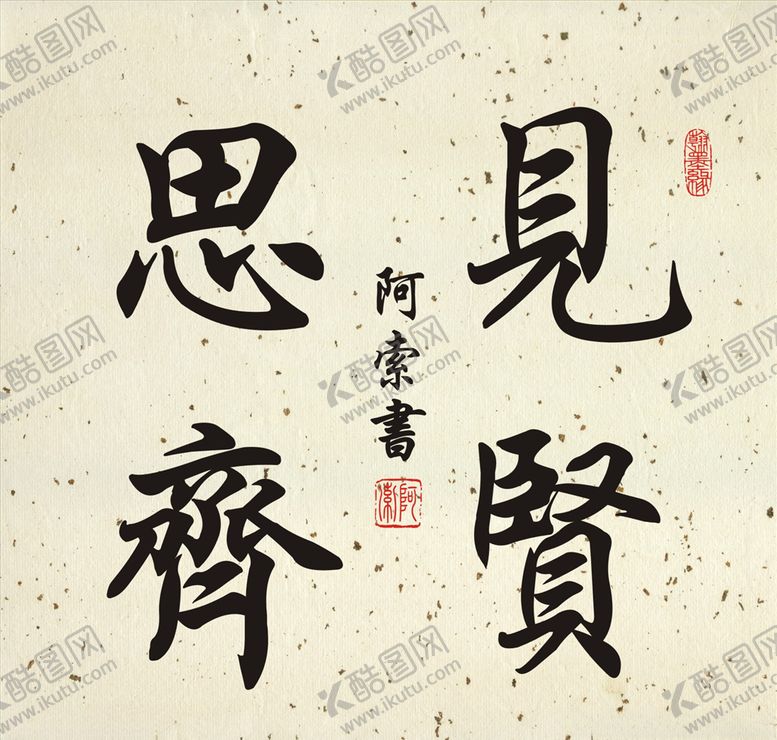 見賢
思齊
阿索書
翰墨緣
阿索
酷图网
www.ikutu.com